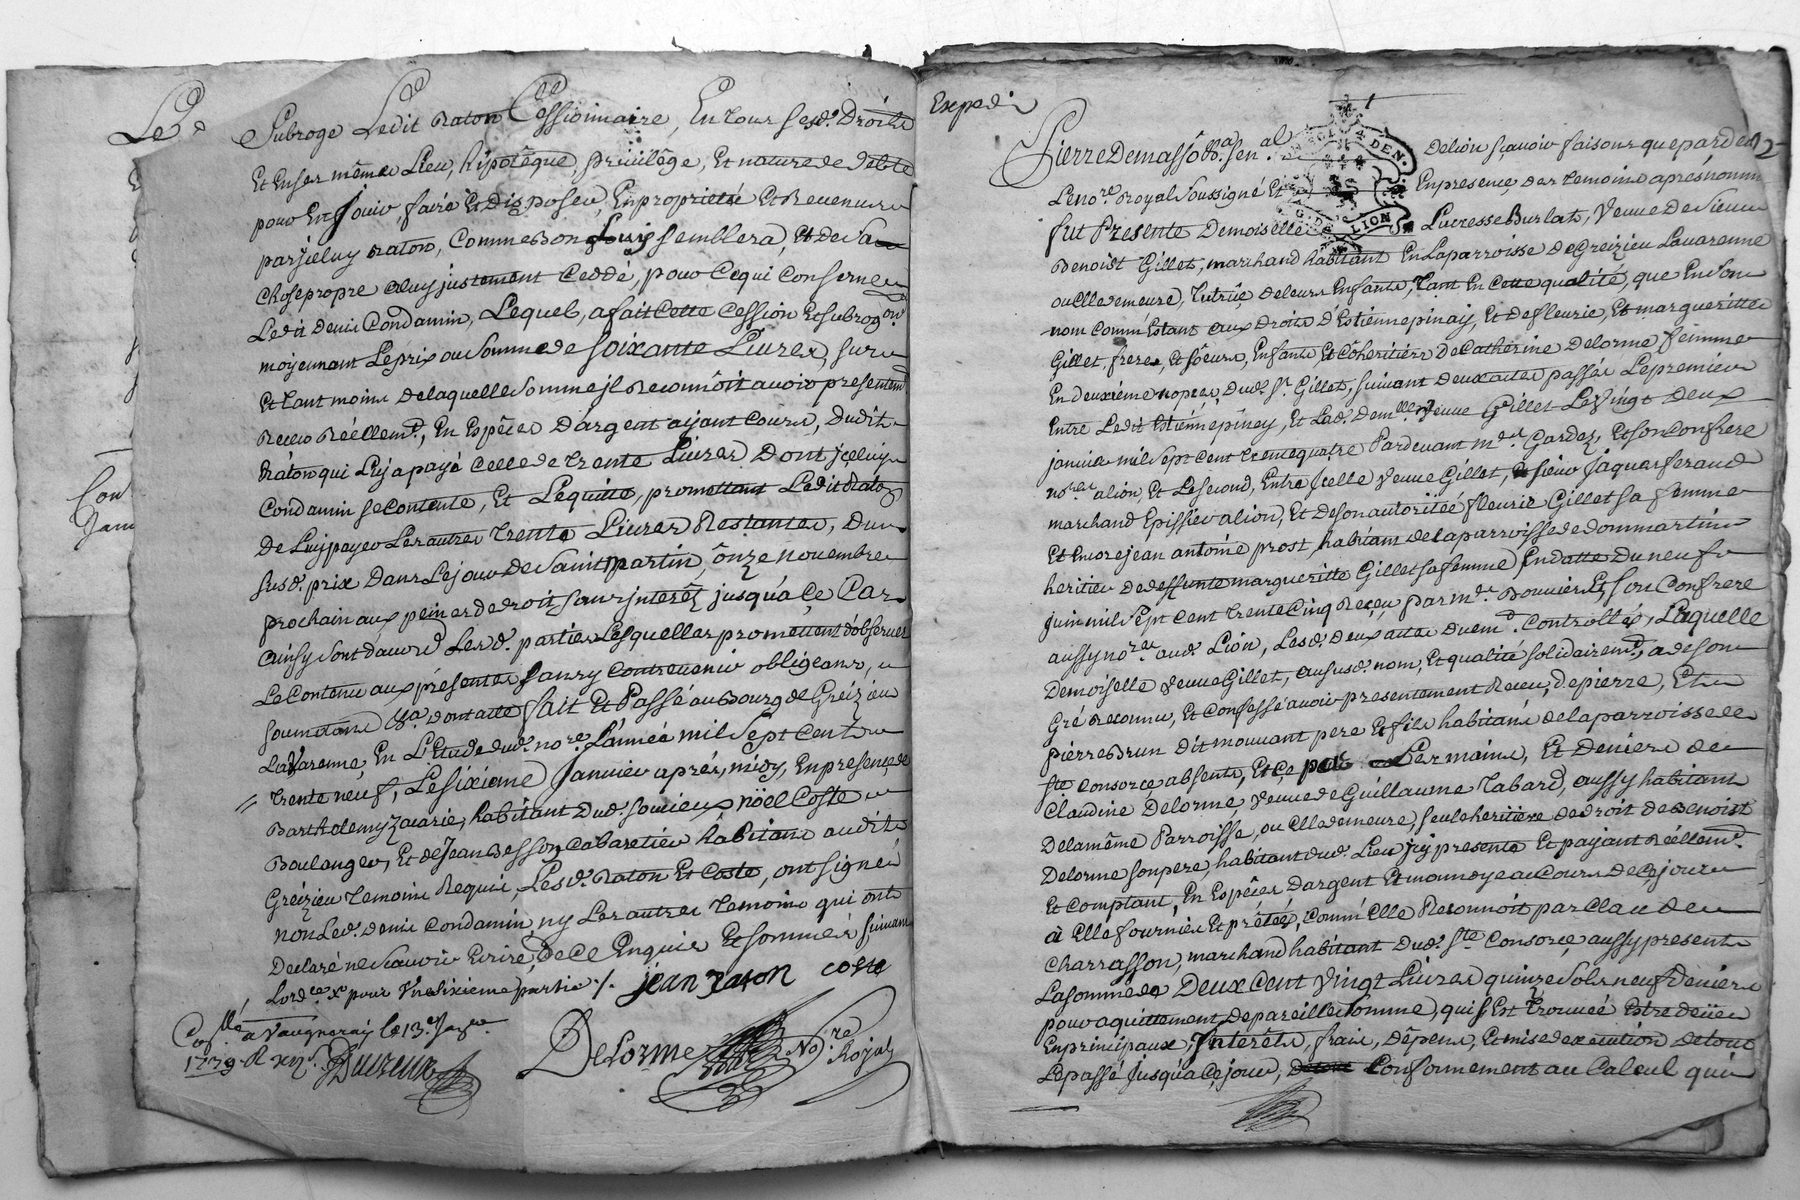 Led
Subroge Ledit Raton Cessionnaire, En tous sesd. Droits
Et En ses même Lieu, hÿpotêque, privilêge, Et nature de debte
pour En Jouir, faire Et disposer, En proprieté Et Revenus
par jceluy Raton, Comme Bon semblera, Et de sa
Chose propre a luy justement Ceddé, pour Ce qui Conserne
Ledit denis Condamin, Lequel, a fait Cette Cession Et subrogon
moÿennant Le prix ou Somme de soixante Livres, sur
Et tant moins de laquelle Somme jl Reconnôit avoir presentemt
Receu Réellemt, En Espêces d'argent aÿant Cours, dudit
Râton qui Luy a payé Celle de trente Livres dont jceluy
Condamin se Contente, Et Lequitte, promettant Ledit Raton
De Luy payer Les autres trente Livres Restantes, du
susd. prix Dans Le jour de saint Martin, ônze novembre
prochain aux peines de droit, sans jnterêt jusqu'a Ce Car
ainsy sont d'accord Lesd. parties Lesquelles promettent d'observer
Le Contenu aux présentes sans y Contrevenir obligeans,
soumetans &a. dont acte fait Et Passé au Bourg de Greizieu
La Varenne, En L'Etude dud. nore. L'année mil sept Cent
trente neuf, Le sixieme Janvier aprés midy, En presence de
Barthelemy Zacarie, habitant dud. soucieux, Nöel Coste
Boulanger, Et de Jean Besson Cabaretier hâbitans audit
Greizieu temoins Requis, Lesd. Raton Et Coste, ont signé
non Led. denis Condamin, ny Les autres temoins qui ont
Declaré ne sçavoir Ecrire, de Ce Enquis Et sommés suivant
Lordce. x pour Une sixieme partie /. jean raton coste
Collé. a Vaugneray le 13e. Janer.
1739 R
Delorme Nore. Royal
Con
Jam
Exped
Pierre Demasso &a. sen.al De lion sçavoir faisons que pardev.
Le nore. Royal soussigné Et En presence des temoins aprés nommé
fut Presente Demoiselle Lucresse Burlat, Veuve de sieur
Benoist Gillet, marchand habitant En La parroisse de Greizieu Lavarenne
ou Elle demeure, tutrîce de leurs Enfants, tant En Cette qualité, que En son
nom Comm' Estant aux droits d'Estienne pinay, Et de fleurie, Et margueritte
Gillet, freres Et sôeurs, Enfants Et Côheritiers de Catherine Delorme femme
En deuxiéme nopces, dud. sr. Gillet, suivant deux actes passés Le premier
Entre Ledit Estienne pinay, Et Lad. Demlle Veuve Gillet Le Vingt deux
janvier mil sept cent trente quatre Pardevant me. Gardez, Et son Confrere
nores. a lion, Et Le second, Entre Jcelle Veuve Gillet, sieur Jaques ferand
marchand Epissier a lion, Et de son autoritéé fleurie Gillet sa femme
Et Encore jean antoine prost, habitant de la parroisse de dommartin
heritier de deffunte margueritte Gillet sa femme En datte du neuf
juin mil sept cent trente Cinq Reçeu par me. Bouvier Et son Confrere
aussy nore. aud. Lion, Lesd. deux actes duemt. Controllés, Laquelle
Demoiselle Veuve Gillet, au susd. nom, Et qualité solidairemt, a de son
Gré Reconnu, Et Confessé avoir presentement Receu, de pierre, Et
pierre Brun dit mouvant pere Et fils habitans de la parroisse de
ste. Consorce absents, Et Ce Les mains, Et Deniers de
Claudine Delorme Veuve de Guillaume Tabard, aussy habitant
De la même Parroisse, ou Elle demeure, seule heritière de droit de Benoist
Delorme son pere, habitant dud. Lieu jcy presente Et payant Réellemt.
Et Comptant, En Espêces, d'argent Et monnoye au Cours de Ce jour
à Elle fournies Et prêtées, Comm' Elle Reconnoit par Claude
Charrasson, marchand habitant dud. ste. Consorce, aussy present
La somme de Deux Cent Vingt Livres quinze sols neuf deniers
pour aquittement de pareille somme, qui s'Est trouvée Estre deüe
En principaux, Jnterêts, frais, dêpens, Et mise d'execution de tout
Le passé Jusqu'a Ce jour, Conformement au Calcul qui